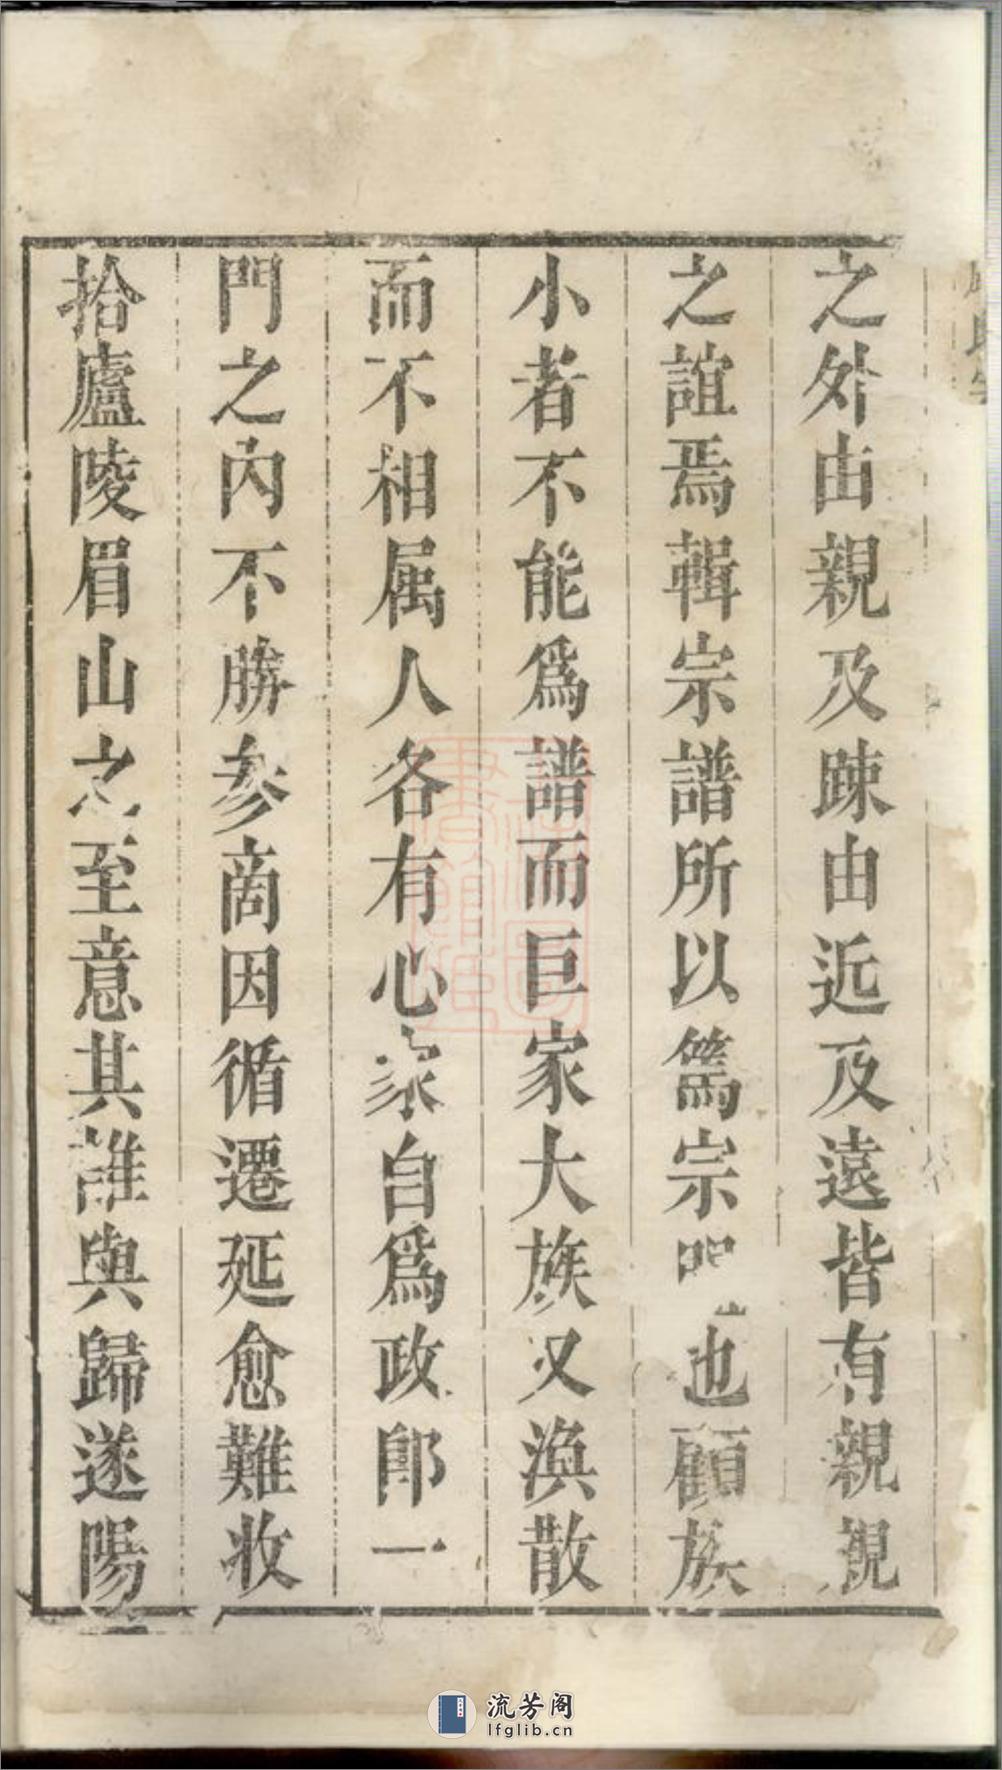 之外由親及疎由近及遠皆有親親
之誼焉輯宗譜所以篤宗也顧族
小者不能為譜而巨家大族又渙散
而不相属人各有心家自為政即一
門之內不勝參商因循遷延愈難收
拾廬陵眉山之至意其誰與歸遂陽
流芳阁
lfglib.cn